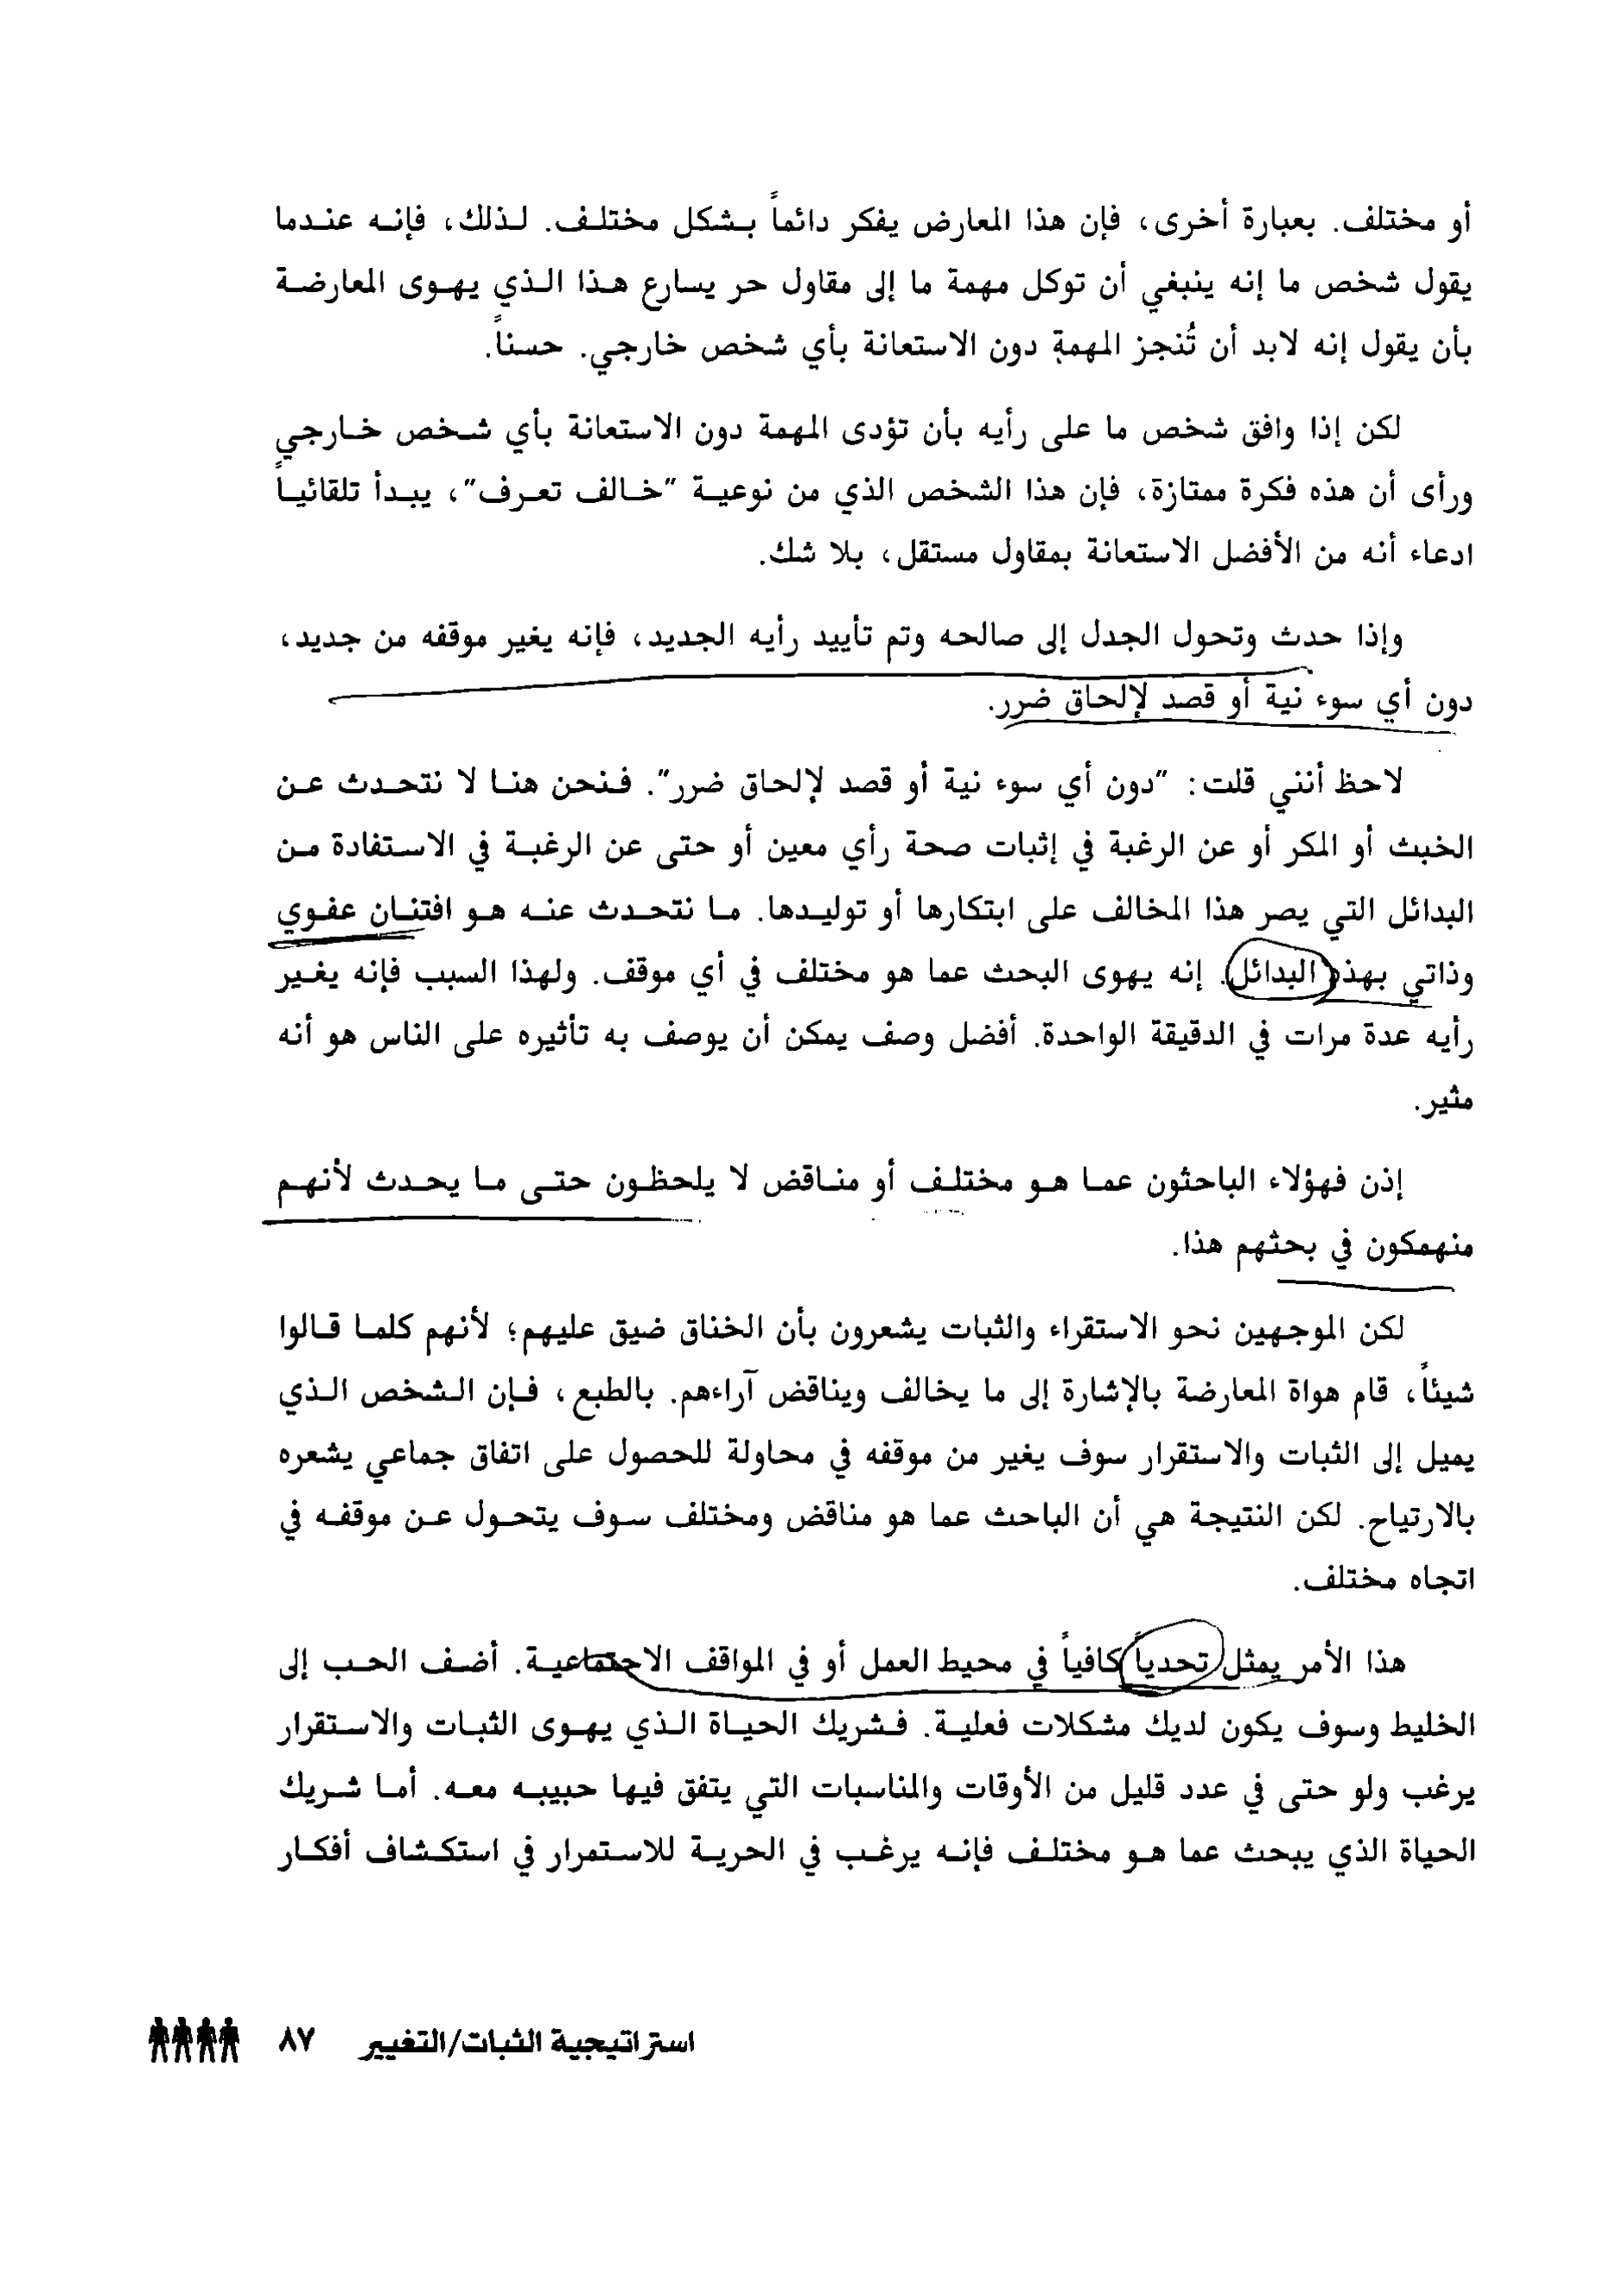 أو مختلف. بعبارة أخرى، فإن هذا المعارض يفكر دائماً بشكل مختلف. لذلك، فإنه عندما
يقول شخص ما إنه ينبغي أن توكل مهمة ما إلى مقاول حر يسارع هذا الذي يهوى المعارضة
بأن يقول إنه لابد أن تُنجز المهمة دون الاستعانة بأي شخص خارجي. حسناً.
لكن إذا وافق شخص ما على رأيه بأن تؤدى المهمة دون الاستعانة بأي شخص خارجي
ورأى أن هذه فكرة ممتازة، فإن هذا الشخص الذي من نوعية "خالف تعرف"، يبدأ تلقائياً
ادعاء أنه من الأفضل الاستعانة بمقاول مستقل، بلا شك.
وإذا حدث وتحول الجدل إلى صالحه وتم تأييد رأيه الجديد، فإنه يغير موقفه من جديد،
دون أي سوء نية أو قصد لإلحاق ضرر.
لاحظ أنني قلت: "دون أي سوء نية أو قصد لإلحاق ضرر". فنحن هنا لا نتحدث عن
الخبث أو المكر أو عن الرغبة في إثبات صحة رأي معين أو حتى عن الرغبة في الاستفادة من
البدائل التي يصر هذا المخالف على ابتكارها أو توليدها. ما نتحدث عنه هو افتنان عفوي
وذاتي بهذه البدائل. إنه يهوى البحث عما هو مختلف في أي موقف. ولهذا السبب فإنه يغير
رأيه عدة مرات في الدقيقة الواحدة. أفضل وصف يمكن أن يوصف به تأثيره على الناس هو أنه
مثير.
إذن فهؤلاء الباحثون عما هو مختلف أو مناقض لا يلحظون حتى ما يحدث لأنهم
منهمكون في بحثهم هذا.
لكن الموجهين نحو الاستقراء والثبات يشعرون بأن الخناق ضيق عليهم؛ لأنهم كلما قالوا
شيئاً، قام هواة المعارضة بالإشارة إلى ما يخالف ويناقض آراءهم. بالطبع، فإن الشخص الذي
يميل إلى الثبات والاستقرار سوف يغير من موقفه في محاولة للحصول على اتفاق جماعي يشعره
بالارتياح. لكن النتيجة هي أن الباحث عما هو مناقض ومختلف سوف يتحول عن موقفه في
اتجاه مختلف.
هذا الأمر يمثل تحدياً كافياً في محيط العمل أو في المواقف الاجتماعية. أضف الحب إلى
الخليط وسوف يكون لديك مشكلات فعلية. فشريك الحياة الذي يهوى الثبات والاستقرار
يرغب ولو حتى في عدد قليل من الأوقات والمناسبات التي يتفق فيها حبيبه معه. أما شريك
الحياة الذي يبحث عما هو مختلف فإنه يرغب في الحرية للاستمرار في استكشاف أفكار
استراتيجية الثبات/التغيير ٨٧